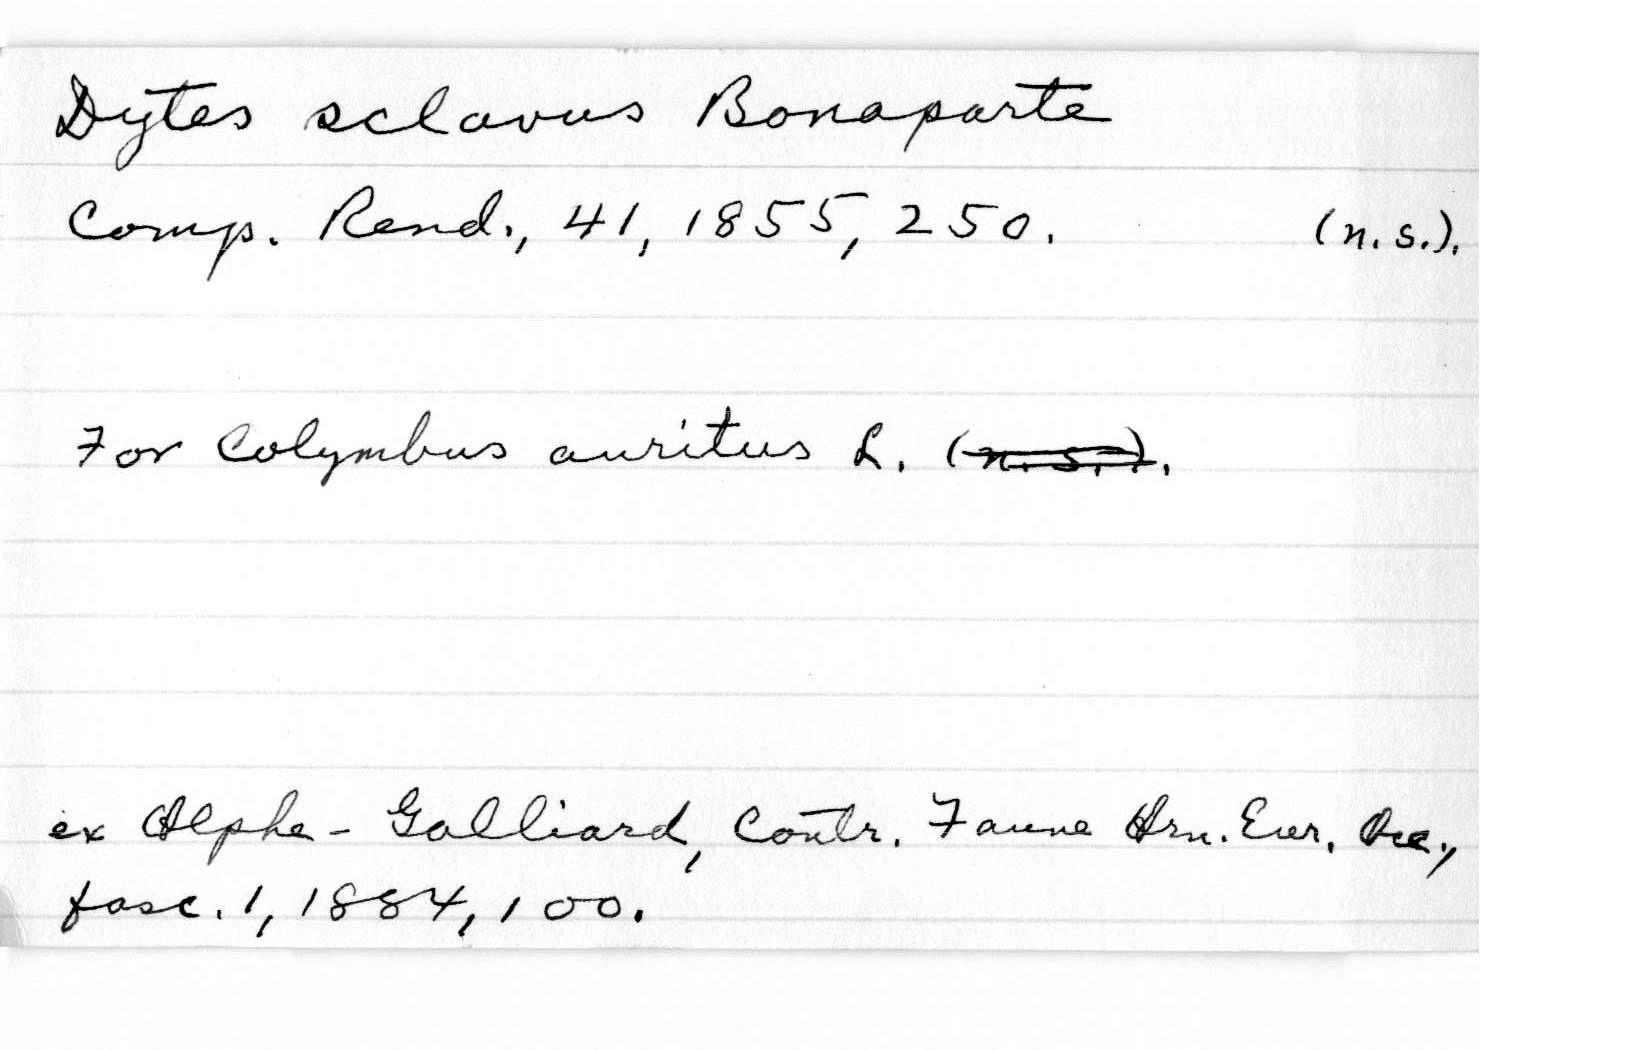 Dytes sclavus Bonaparte
Comp. Rend., 41, 1855, 250. (n.s.).
For Colymbus auritus L. (n.s.).
ex Alphe-Galliard, Contr. Faune Orn. Eur. Occ.,
fasc. 1, 1884, 100.